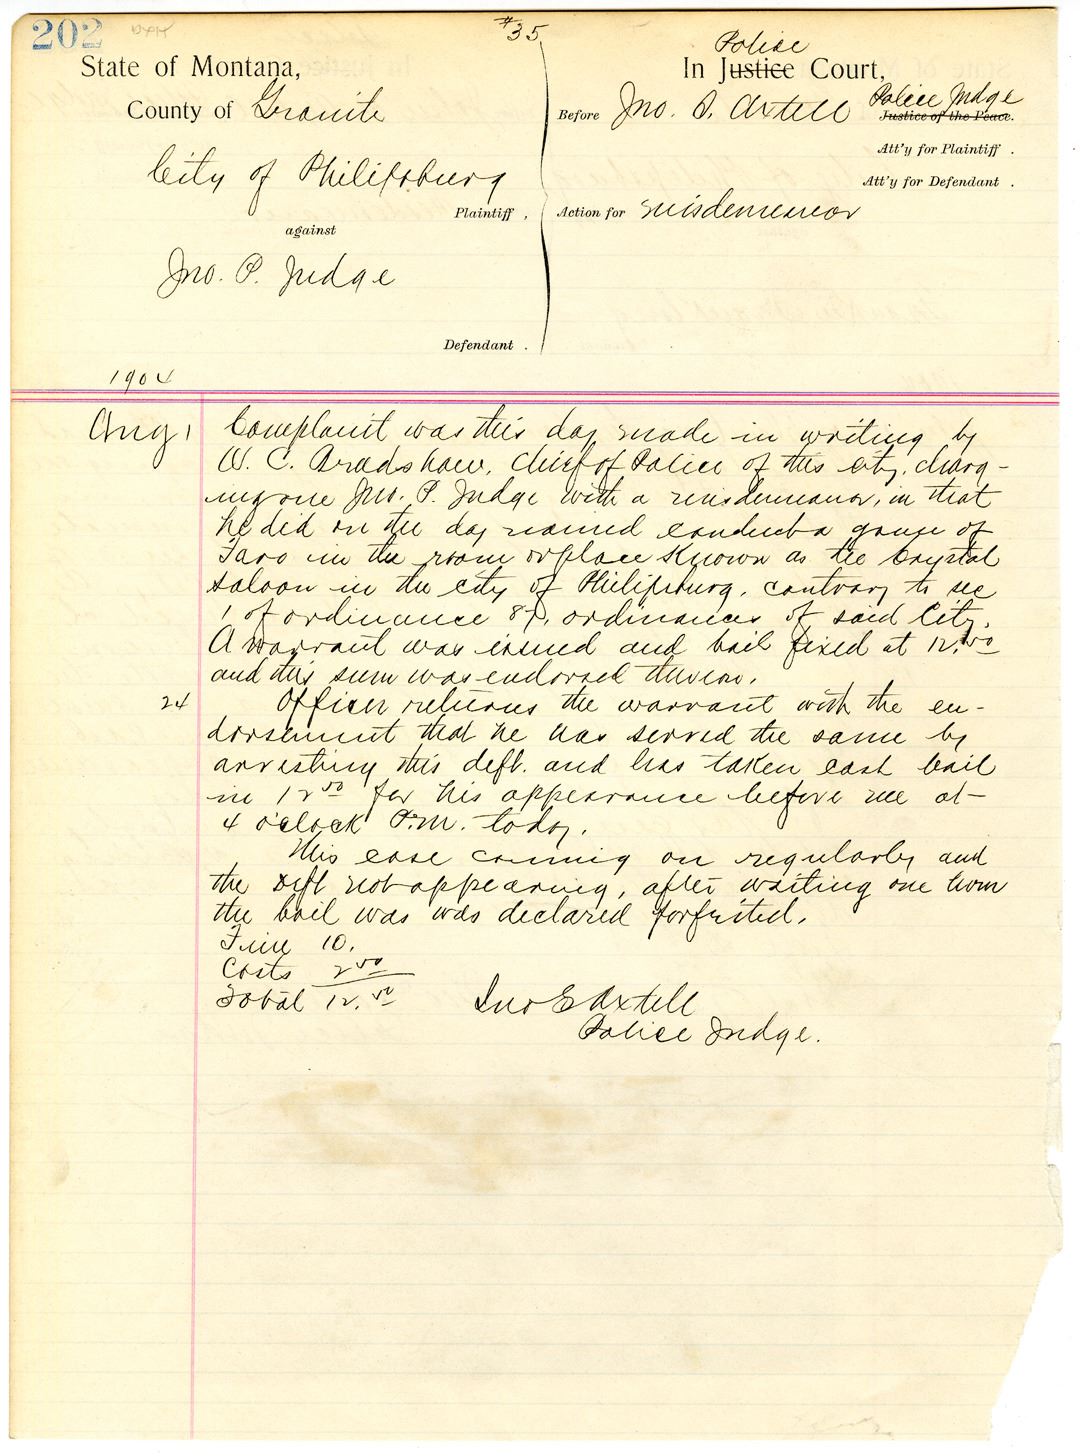 202
#35
State of Montana,
County of Granite
City of Philipsburg
Plaintiff ,
against
Jno. P. Judge
Defendant .
Police
In Justice Court,
Before Jno. S. Axtell Police Judge
Justice of the Peace.
Att'y for Plaintiff .
Att'y for Defendant .
Action for misdemeanor
1904
Aug 1 Complaint was this day made in writing by
W. C. Bradshaw, Chief of Police of this city, charg-
ing one Jno. P. Judge with a misdemeanor, in that
he did on the day named conduct a game of
Faro in the room or place Known as the Crystal
Saloon in the city of Philipsburg, contrary to sec
1 of ordinance 87, ordinances of said City.
A warrant was issued and bail fixed at 12.50
and this sum was endorsed thereon.
24 Officer returns the warrant with the en-
dorsement that he has served the same by
arresting this deft. and has taken cash bail
in 12 50 for his appearance before me at
4 o'clock P.M. today.
This case coming on regularly and
the Deft not appearing, after waiting one hour
the bail was was declared forfeited.
Fine 10.
Costs 2 50
Total 12. 50
Jno E Axtell
Police Judge.